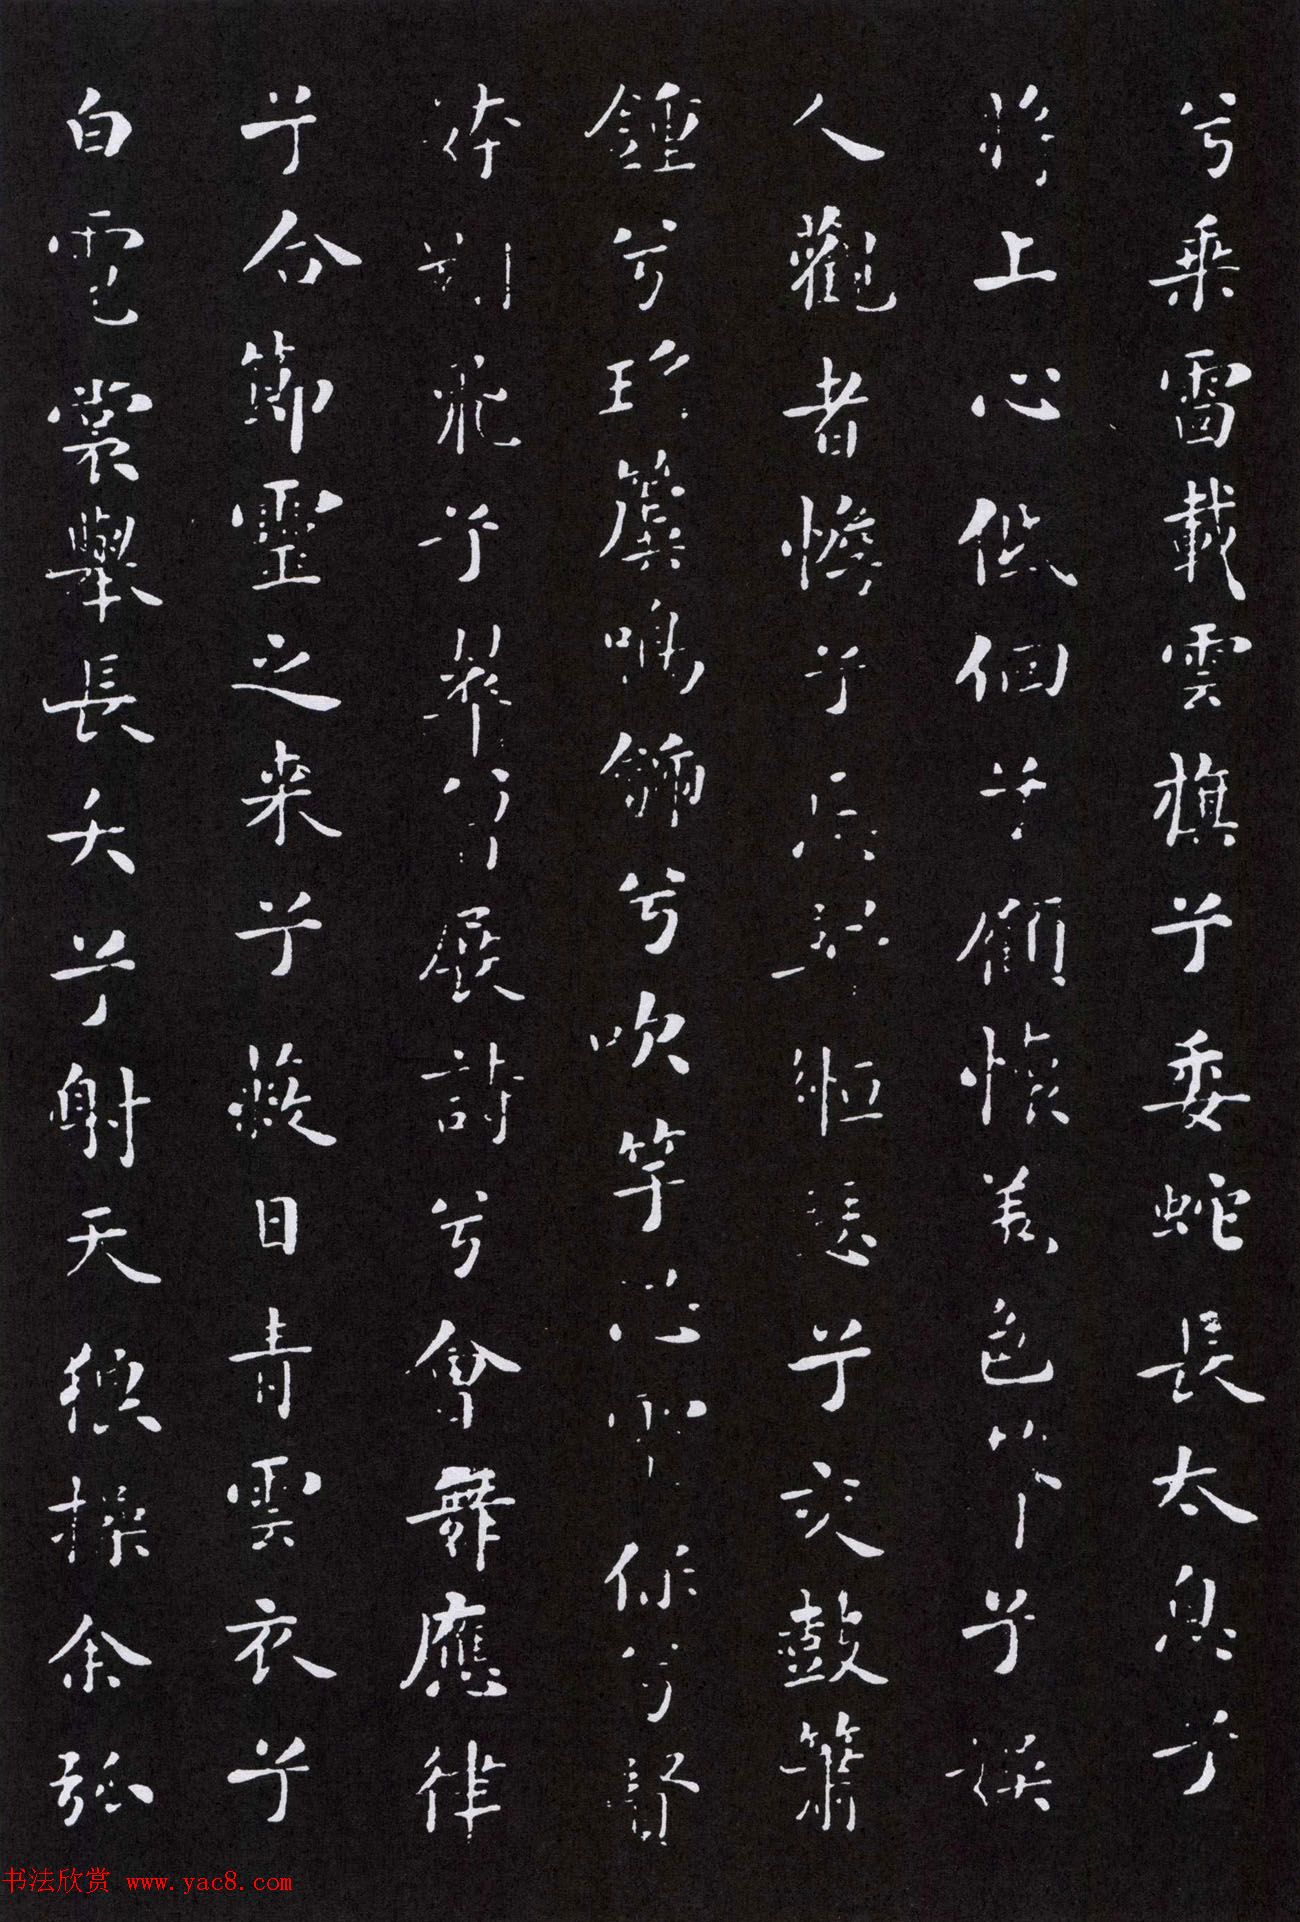 兮乘雷載雲旗兮委蛇長太息兮
將上心低佪兮顧懷羌色兮娛
人觀者憺兮忘歸緪瑟兮交鼓簫
鍾兮瑤簴鳴兮吹竽思靈保兮賢
姱翾飛兮翠曾展詩兮會舞應律
兮合節靈之來兮蔽日青雲衣兮
白霓裳舉長矢兮射天狼操余弧
书法欣赏 www.yac8.com